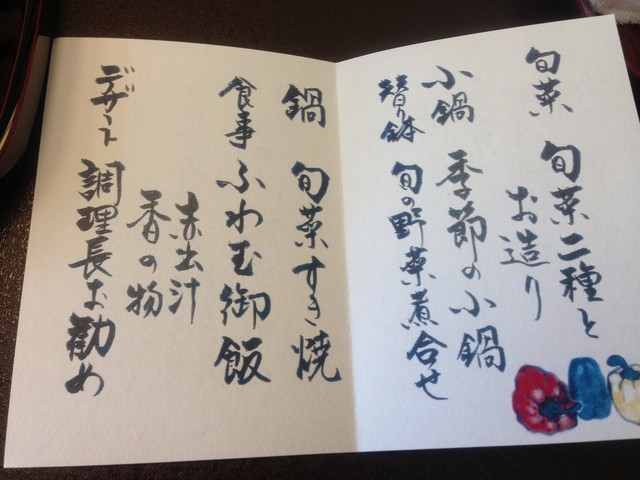 旬菜 旬菜二種と
お造り
小鍋 季節の小鍋
替り鉢 旬の野菜煮合せ
鍋 旬菜すき焼
食事 ふわむ御飯
赤出汁
香の物
デザート 調理長お勧め